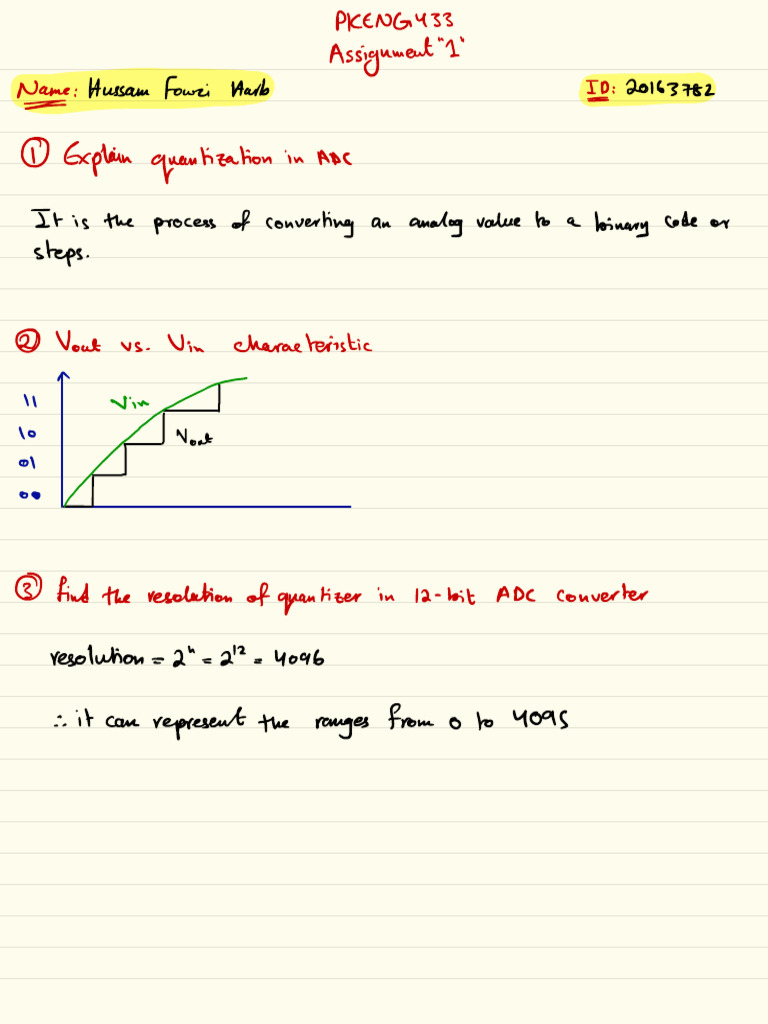 PKENG433
Assignment "1"
Name: Hussam Fowzi Harb
ID: 20163782
① Explain quantization in ADC
It is the process of converting an analog value to a binary code or
steps.
② Vout vs. Vin characteristic
11
Vin
10
Vout
01
00
③ find the resolution of quantizer in 12-bit ADC converter
resolution = 2ⁿ = 2¹² = 4096
∴ it can represent the ranges from 0 to 4095